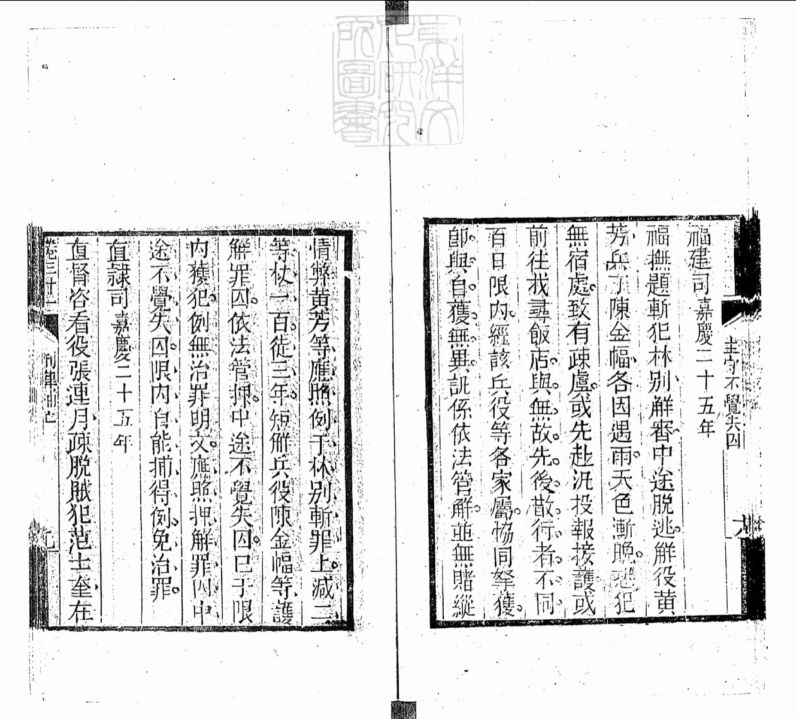 東洋文
化研究
所圖書
主守不覺失囚
福建司嘉慶二十五年
福撫題斬犯林别解審中途脫逃解役黃
芳兵丁陳金幅各因遇雨天色漸晚犯
無宿處。致有疎虞。或先赴汛投報接護或
前往找尋飯店。與無故先後散行者不同
百日限內。經該兵役等各家屬協同拏獲。
卽與自獲無異。訊係依法管解。並無賭縱
情弊。黃芳等應照例于林别斬罪上減二
等。杖一百。徒三年。短解兵役陳金幅等護
解罪囚。依法管押。中途不覺失囚。已于限
內獲犯。例無治罪明文。應照押解罪囚中
途不覺失囚。限內自能捕得例。免治罪。
直隸司嘉慶二十五年
直督咨看役張連月疎脫賊犯范士奎在
刑律捕亡